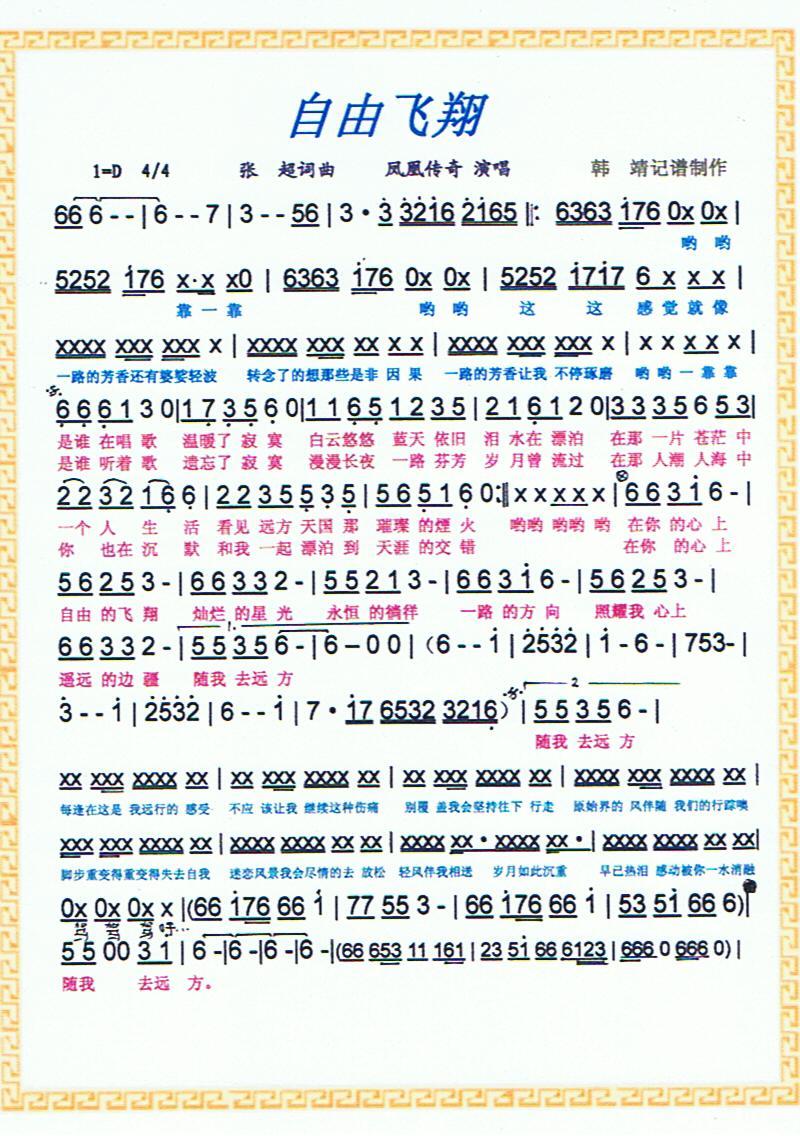 自由飞翔
1=D 4/4 张 超词曲 凤凰传奇 演唱 韩 靖记谱制作
66 6 - - | 6 - - 7 | 3 - - 56 | 3 · 3 3216 2165 ‖: 6363 176 0x 0x |
哟 哟
5252 176 x·x x0 | 6363 176 0x 0x | 5252 1717 6 x x x |
靠 一 靠 哟 哟 这 这 感 觉 就 像
xxxx xxx xxx x | xxxx xxx xx x x | xxxx xxx xxx x | x x x x x |
一路的芳香还有婆娑轻波 转念了的想那些是非 因 果 一路的芳香让我 不停琢磨 哟 哟 一 靠 靠
6 6 6 1 3 0 | 1 7 3 5 6 0 | 1 1 6 5 1 2 3 5 | 2 1 6 1 2 0 | 3 3 3 5 6 5 3 |
是谁 在唱 歌 温暖了 寂 寞 白云悠悠 蓝天 依旧 泪 水在 漂泊 在那 一片 苍茫 中
是谁 听着 歌 遗忘了 寂 寞 漫漫长夜 一路 芬芳 岁 月曾 流过 在那 人潮 人海 中
2 2 3 2 1 6 6 | 2 2 3 5 5 3 5 | 5 6 5 1 6 0 :‖ x x x x x | 6 6 3 1 6 - |
一个 人 生 活 看见 远方 天国 那 璀璨 的煙 火 哟哟 哟哟 哟 在你 的心 上
你 也在 沉 默 和我 一起 漂泊 到 天涯 的交 错 在你 的心 上
5 6 2 5 3 - | 6 6 3 3 2 - | 5 5 2 1 3 - | 6 6 3 1 6 - | 5 6 2 5 3 - |
自由 的飞 翔 灿烂 的星 光 永恒 的徜徉 一路 的方 向 照耀我 心上
6 6 3 3 2 - | 5 5 3 5 6 - | 6 – 0 0 | (6 - - 1 | 2532 | 1 - 6 - | 753- |
遥远 的边 疆 随我 去远 方
3 - - 1 | 2532 | 6 - - 1 | 7 · 17 6532 3216 ) | 5 5 3 5 6 - |
随我 去远 方
xx xxx xxxx xx | xx xxx xxxx xx | xxxx xxx xxxx xx | xxxx xxx xxxx xx |
每逢在这是 我远行的 感受 不应 该让我 继续这种伤痛 别覆 盖我会坚持往下 行走 原始界的 风伴随 我们的行踪噢
xx xxx xxxx xx | xxxx xxxx xx xx | xxxx xx · xxxx xx · | xxxx xxxx xx xx |
脚步重变得重变得失去自我 迷恋风景我会尽情的去 放松 轻风伴我相送 岁月如此沉重 早已热泪 感动被你一水消融
0x 0x 0x x | (66 176 66 1 | 77 55 3 - | 66 176 66 1 | 53 51 66 6 ) |
驾 驾 驾 吁…
5 5 00 3 1 | 6 - | 6 - | 6 - | 6 - | (66 653 11 161 | 23 51 66 6123 | 666 0 666 0) |
随我 去远 方。